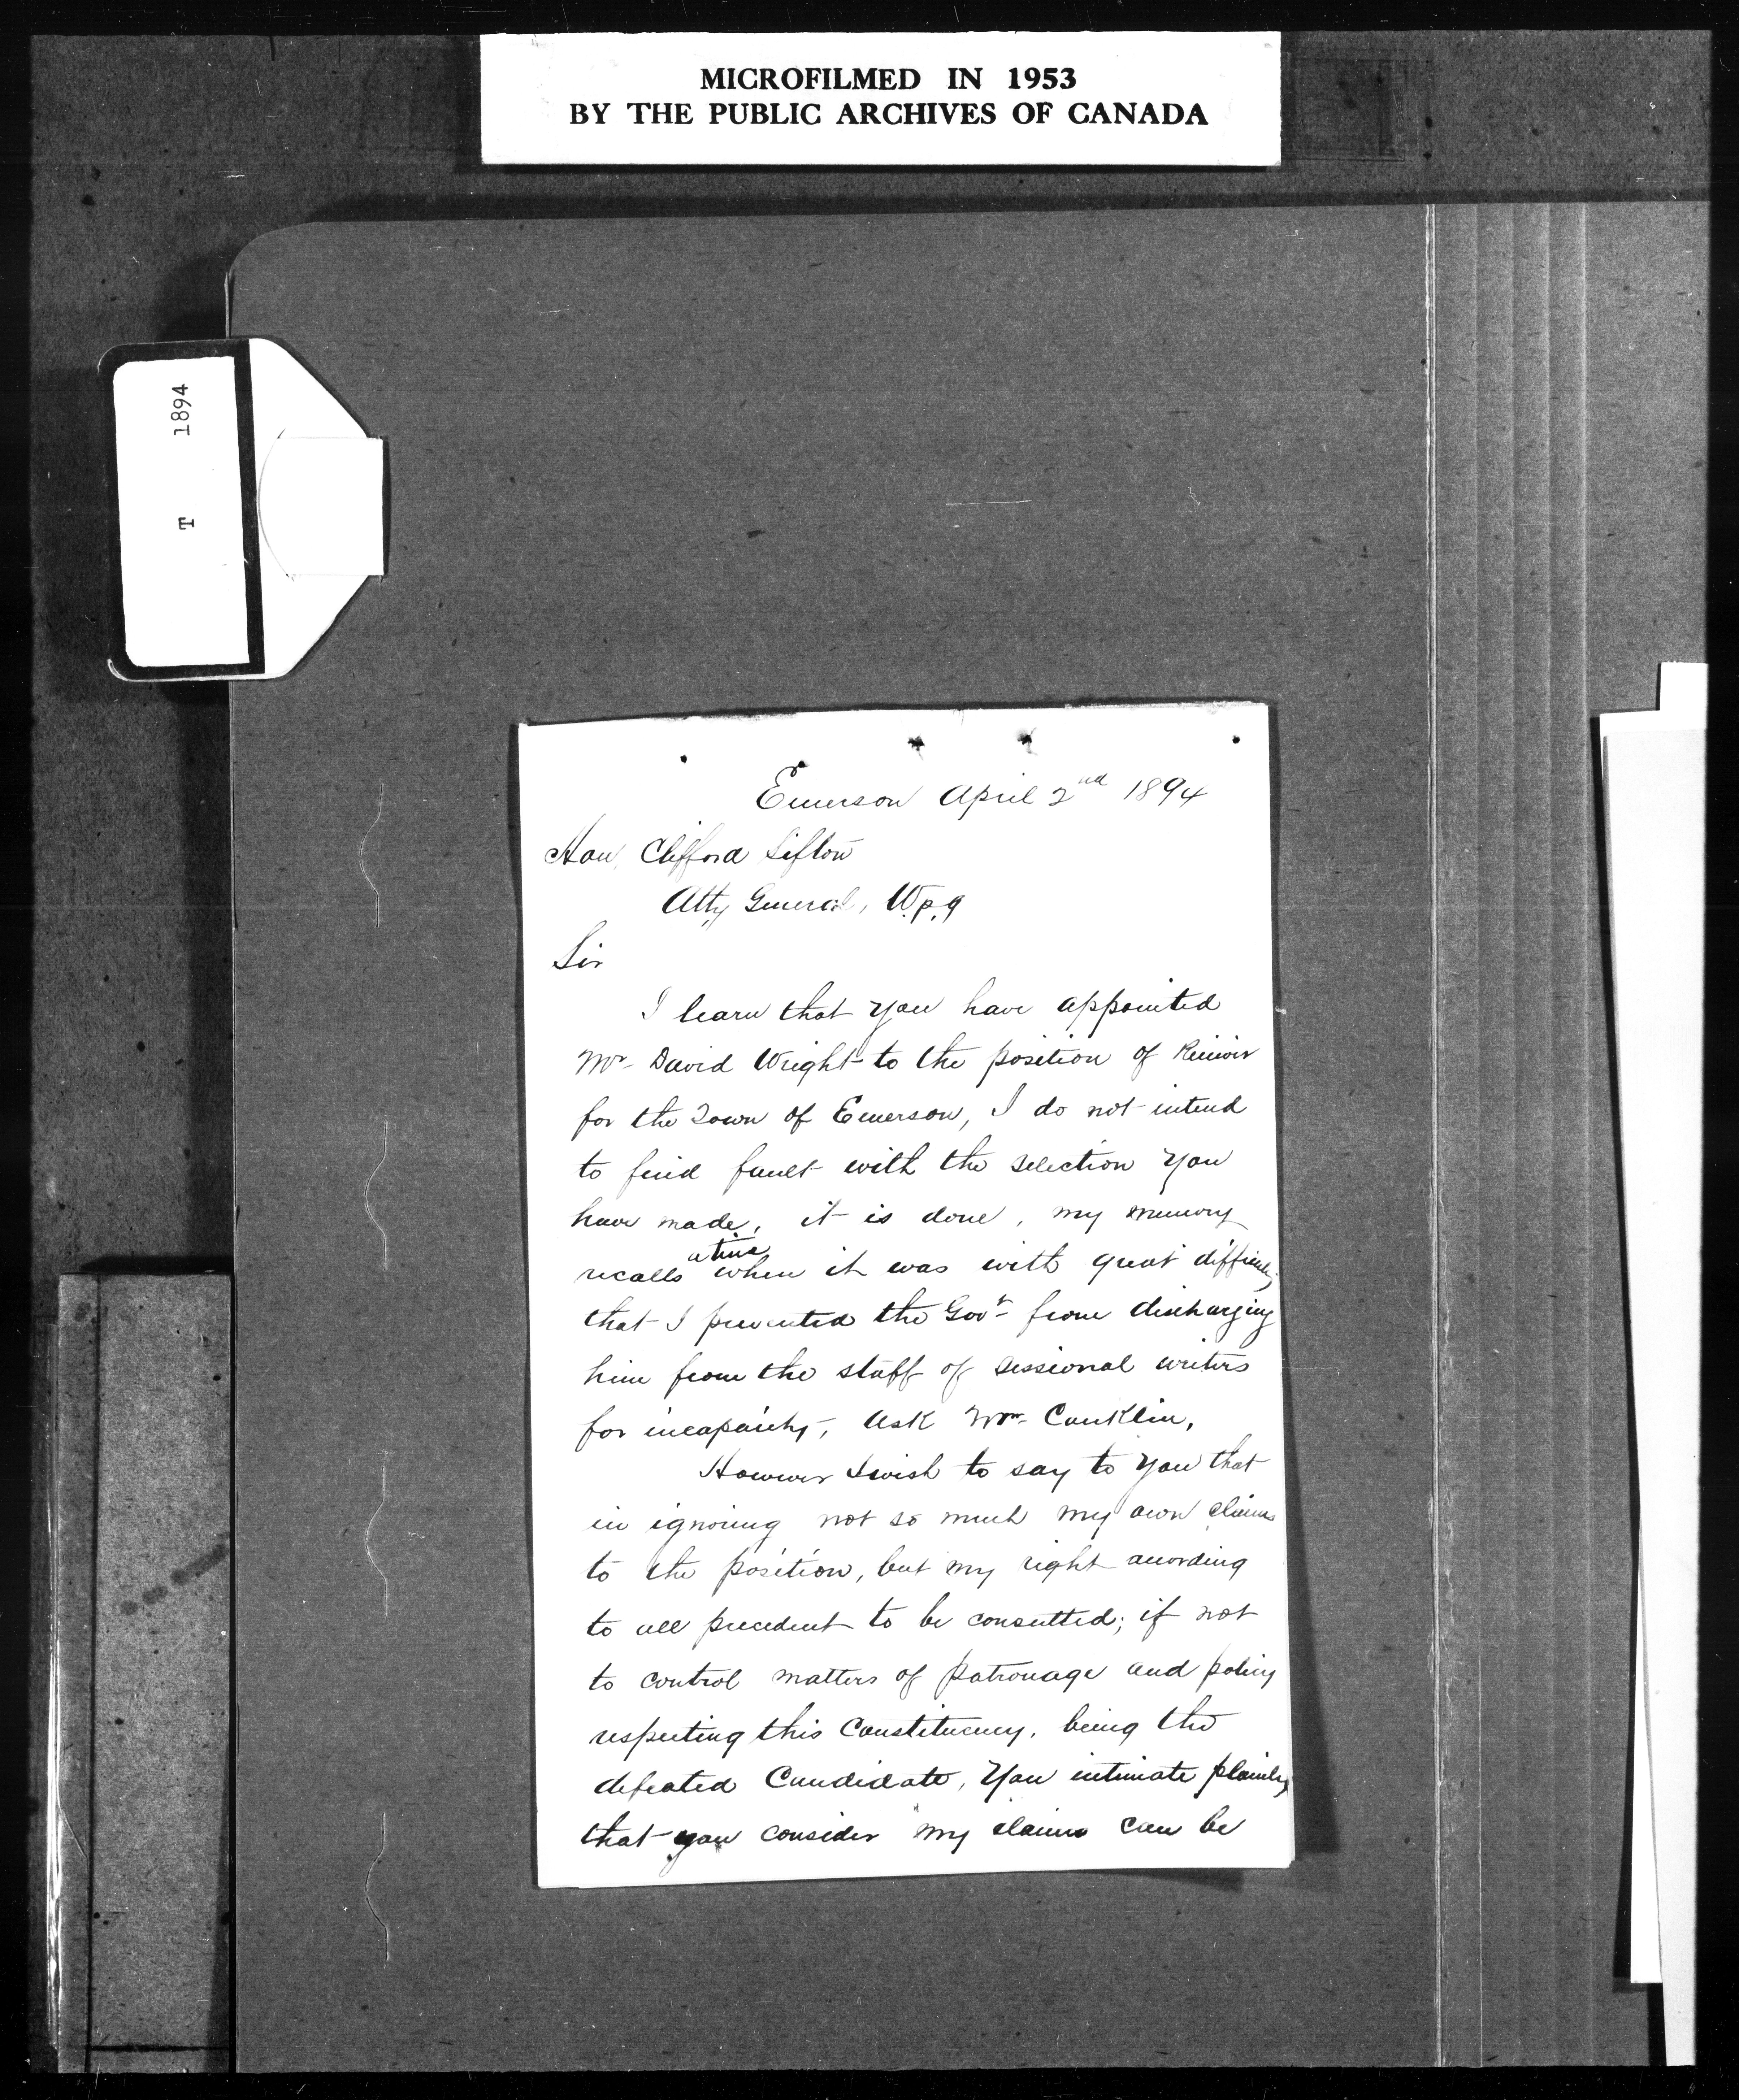 MICROFILMED IN 1953
BY THE PUBLIC ARCHIVES OF CANADA
T 1894
Emerson April 2nd 1894
Hon. Clifford Sifton
Atty General, Wpg
Sir
I learn that you have appointed
Mr David Wright to the position of
for the Town of Emerson, I do not intend
to find fault with the selection you
have made, it is done, my memory
recalls a time when it was with great difficulty
that I prevented the Govt from discharging
him from the staff of sessional writers
for incapacity, ask Mr Conklin,
However I wish to say to you that
in ignoring not so much my own claims
to the position, but my right according
to all precedent to be consulted; if not
to control matters of patronage and policy
respecting this Constituency, being the
defeated Candidate, You intimate plainly
that you consider my claims can be